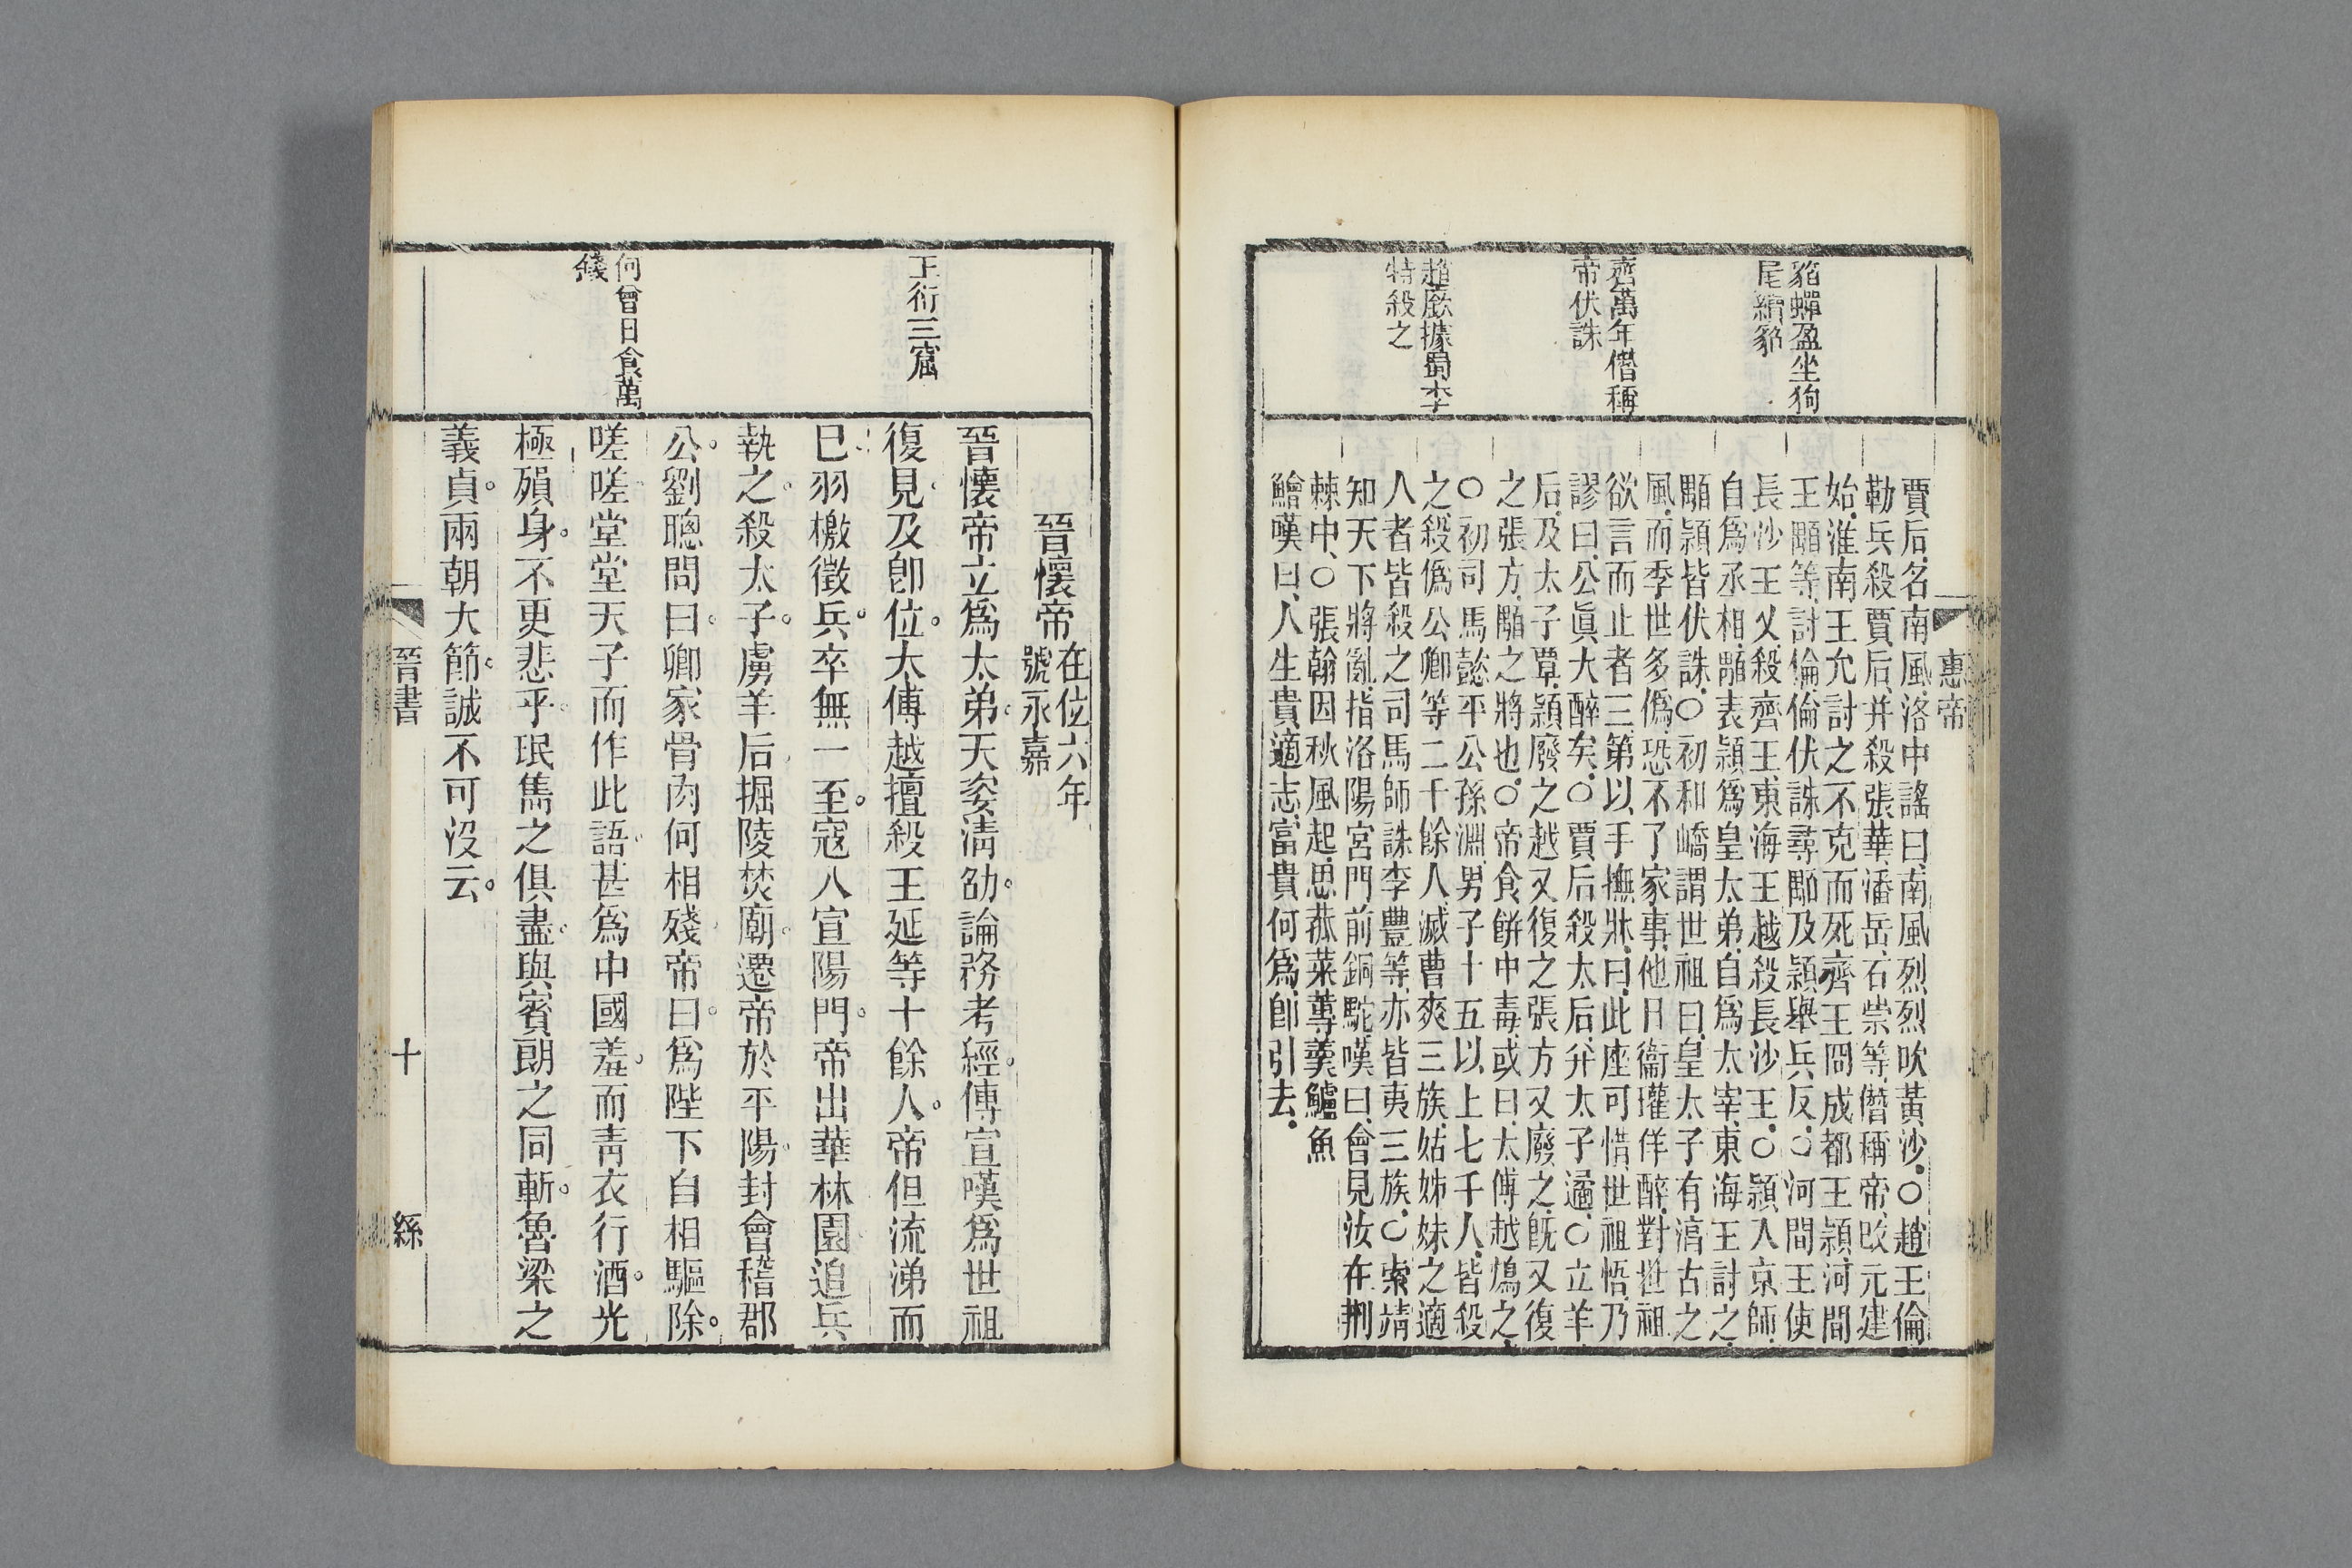 惠帝
貂蟬盈坐狗
尾續貂
齊萬年僭稱
帝伏誅
趙廞據蜀李
特殺之
賈后名南風洛中謠曰南風烈烈吹黃沙〇趙王倫
勒兵殺賈后并殺張華潘岳石崇等僭稱帝改元建
始淮南王允討之不克而死齊王冏成都王穎河間
王顒等討倫倫伏誅尋顒及穎舉兵反〇河間王使
長沙王乂殺齊王東海王越殺長沙王〇穎入京師
自爲丞相顒表穎爲皇太弟自爲太宰東海王討之
顒穎皆伏誅〇初和嶠謂世祖曰皇太子有淳古之
風而季世多僞恐不了家事他日衞瓘佯醉對世祖
欲言而止者三第以手撫牀曰此座可惜世祖悟乃
謬曰公眞大醉矣〇賈后殺太后弁太子遹〇立羊
后及太子覃穎廢之越又復之張方又廢之旣又復
之張方顒之將也〇帝食餅中毒或曰太傅越鴆之
〇初司馬懿平公孫淵男子十五以上七千人皆殺
之殺僞公卿等二千餘人滅曹爽三族姑姊妹之適
人者皆殺之司馬師誅李豐等亦皆夷三族〇索靖
知天下將亂指洛陽宮門前銅駝嘆曰會見汝在荆
棘中〇張翰因秋風起思菰菜蓴羹鱸魚
鱠嘆曰人生貴適志富貴何爲卽引去
王衍三窟
何曾日食萬
錢
晉懷帝在位六年
號永嘉
晉懷帝立爲太弟天姿淸劭論務考經傳宣嘆爲世祖
復見及卽位太傅越擅殺王延等十餘人帝但流涕而
已羽檄徵兵卒無一至寇入宣陽門帝出華林園追兵
執之殺太子虜羊后掘陵焚廟遷帝於平陽封會稽郡
公劉聰問曰卿家骨肉何相殘帝曰爲陛下自相驅除
嗟嗟堂堂天子而作此語甚爲中國羞而靑衣行酒光
極殞身不更悲乎珉雋之俱盡與賓朗之同斬魯梁之
義貞兩朝大節誠不可沒云
晉書
十
繇